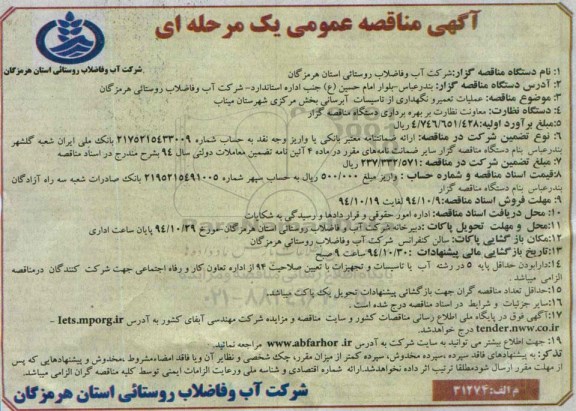 آگهی مناقصه عمومی یک مرحله ای
شرکت آب وفاضلاب روستائی استان هرمزگان
۱: نام دستگاه مناقصه گزار: شرکت آب وفاضلاب روستائی استان هرمزگان
۲: آدرس دستگاه مناقصه گزار: بندرعباس-بلوار امام حسین (ع) جنب اداره استاندارد- شرکت آب وفاضلاب روستائی هرمزگان
۳: موضوع مناقصه: عملیات تعمیرو نگهداری از تاسیسات آبرسانی بخش مرکزی شهرستان میناب
۴: دستگاه نظارت: معاونت نظارت بر بهره برداری دستگاه مناقصه گزار
۵: مبلغ برآورد اولیه: ۴/۷۴۶/۶۵۱/۴۲۸ ریال
۶: نوع تضمین شرکت در مناقصه: ارائه ضمانتنامه معتبر بانکی یا واریز وجه نقد به حساب شماره ۲۱۷۵۲۱۵۴۳۳۰۰۹ بانک ملی ایران شعبه گلشهر
بندرعباس بنام دستگاه مناقصه گزار سایر ضمانت نامه‌های مقرر در ماده ۴ آئین نامه تضمین معاملات دولتی سال ۹۴ بشرح مندرج در اسناد مناقصه
۷: مبلغ تضمین شرکت در مناقصه: ۲۳۷/۳۳۲/۵۷۱ ریال
۸: قیمت اسناد مناقصه و شماره حساب: واریز مبلغ ۵۰۰/۰۰۰ ریال به حساب سپهر شماره ۲۱۹۵۲۱۵۴۹۱۰۰۵ بانک صادرات شعبه سه راه آزادگان
بندرعباس بنام دستگاه مناقصه گزار
۹: مهلت فروش اسناد مناقصه: ۹۴/۱۰/۹ لغایت ۹۴/۱۰/۱۹
۱۰: محل دریافت اسناد مناقصه: اداره امور حقوقی و قرار دادها و رسیدگی به شکایات
۱۱: محل و مهلت تحویل پاکات: دبیرخانه شرکت آب و فاضلاب روستائی استان هرمزگان-مورخ ۹۴/۱۰/۲۹ پایان ساعت اداری
۱۲: مکان بازگشایی پاکات: سالن کنفرانس شرکت آب وفاضلاب روستائی هرمزگان
۱۳: تاریخ بازگشایی مالی پیشنهادات: ۹۴/۱۰/۳۰ ساعت ۹ صبح
۱۴: دارابودن حداقل پایه ۵ در رشته آب یا تاسیسات و تجهیزات با تعیین صلاحیت ۹۴ از اداره تعاون کار و رفاه اجتماعی جهت شرکت کنندگان درمناقصه
الزامی میباشد.
۱۵: حداقل تعداد مناقصه گران جهت بازگشائی پیشنهادات تحویل یک پاکت میباشد.
۱۶: سایر جزئیات و شرایط در اسناد مناقصه درج شده است
۱۷: آگهی فوق در پایگاه ملی اطلاع رسانی مناقصات کشور و سایت مناقصه و مزایده شرکت مهندسی آبفای کشور به آدرس Iets.mporg.ir -
tender.nww.co.ir درج خواهدشد.
۱۹: جهت اطلاع بیشتر می توانید به سایت شرکت به آدرس www.abfarhor .ir مراجعه نمائید.
تذکر: به پیشنهادهای فاقد سپرده، سپرده مخدوش، سپرده کمتر از میزان مقرر، چک شخصی و نظایر آن ویا فاقد امضاء مشروط، مخدوش و پیشنهادهایی که پس
از مهلت مقرر ارسال شود مطلقا ترتیب اثر داده نخواهدشد. ارائه شماره اقتصادی و شناسه ملی ورعایت الزامات ایمنی توسط کلیه مناقصه گران الزامی میباشد.
م الف: ۳۱۲۷۴
شرکت آب وفاضلاب روستائی استان هرمزگان